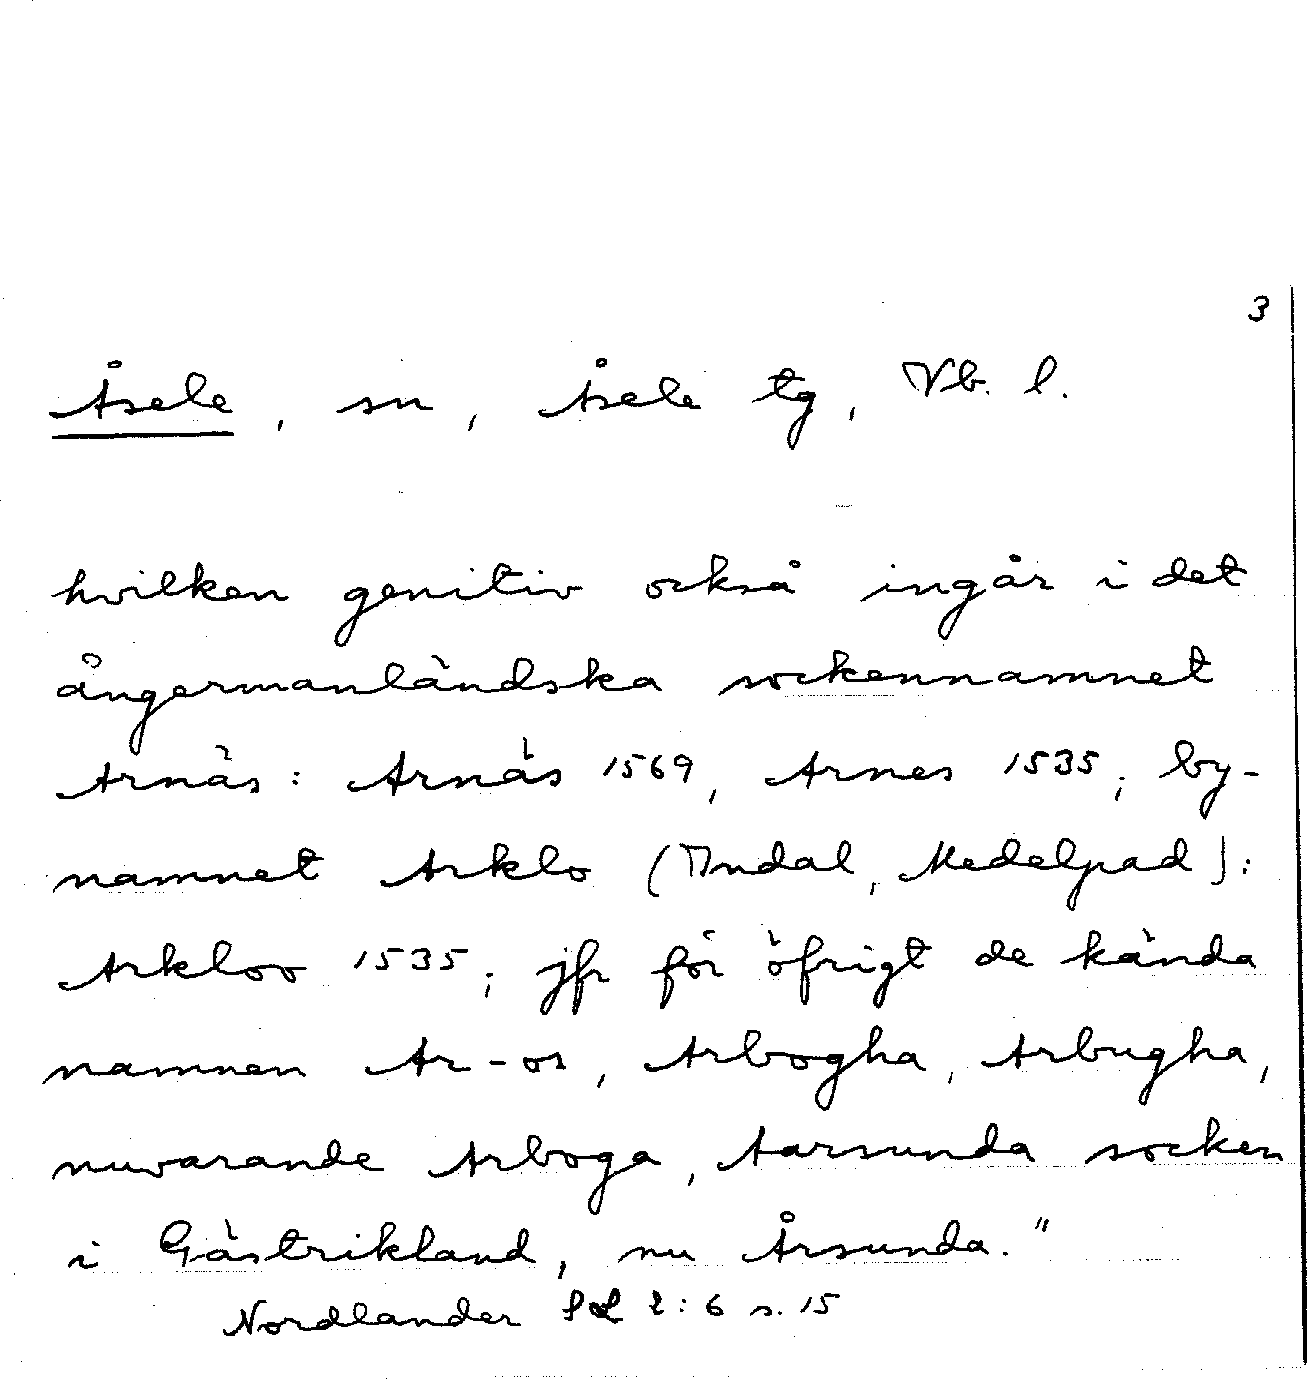 3
Åsele, sn, Åsele tg, Vb. l.
hvilken genitiv också ingår i det
ångermanländska sockennamnet
Arnäs: Arnäs 1569, Arnes 1535; by-
namnet Arklo (Indal, Medelpad):
Arkloo 1535; jfr för öfrigt de kända
namnen Ar-os, Arbogha, Arbugha,
nuvarande Arboga, Aarsunda socken
i Gästrikland, nu Årsunda."
Nordlander 2:6 s. 15